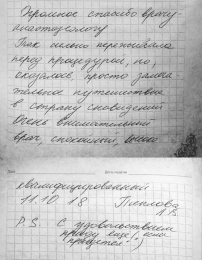 Огромное спасибо врачу
анастезиологу
Так сильно переживала
перед процедурой, но,
оказалось, просто замеча-
тельное путешествие
в страну сновидений
Очень внимательный
врач, спокойный,
квалифицированный
11.10.18
P.S. С удовольствием
приду еще! если
придется :)